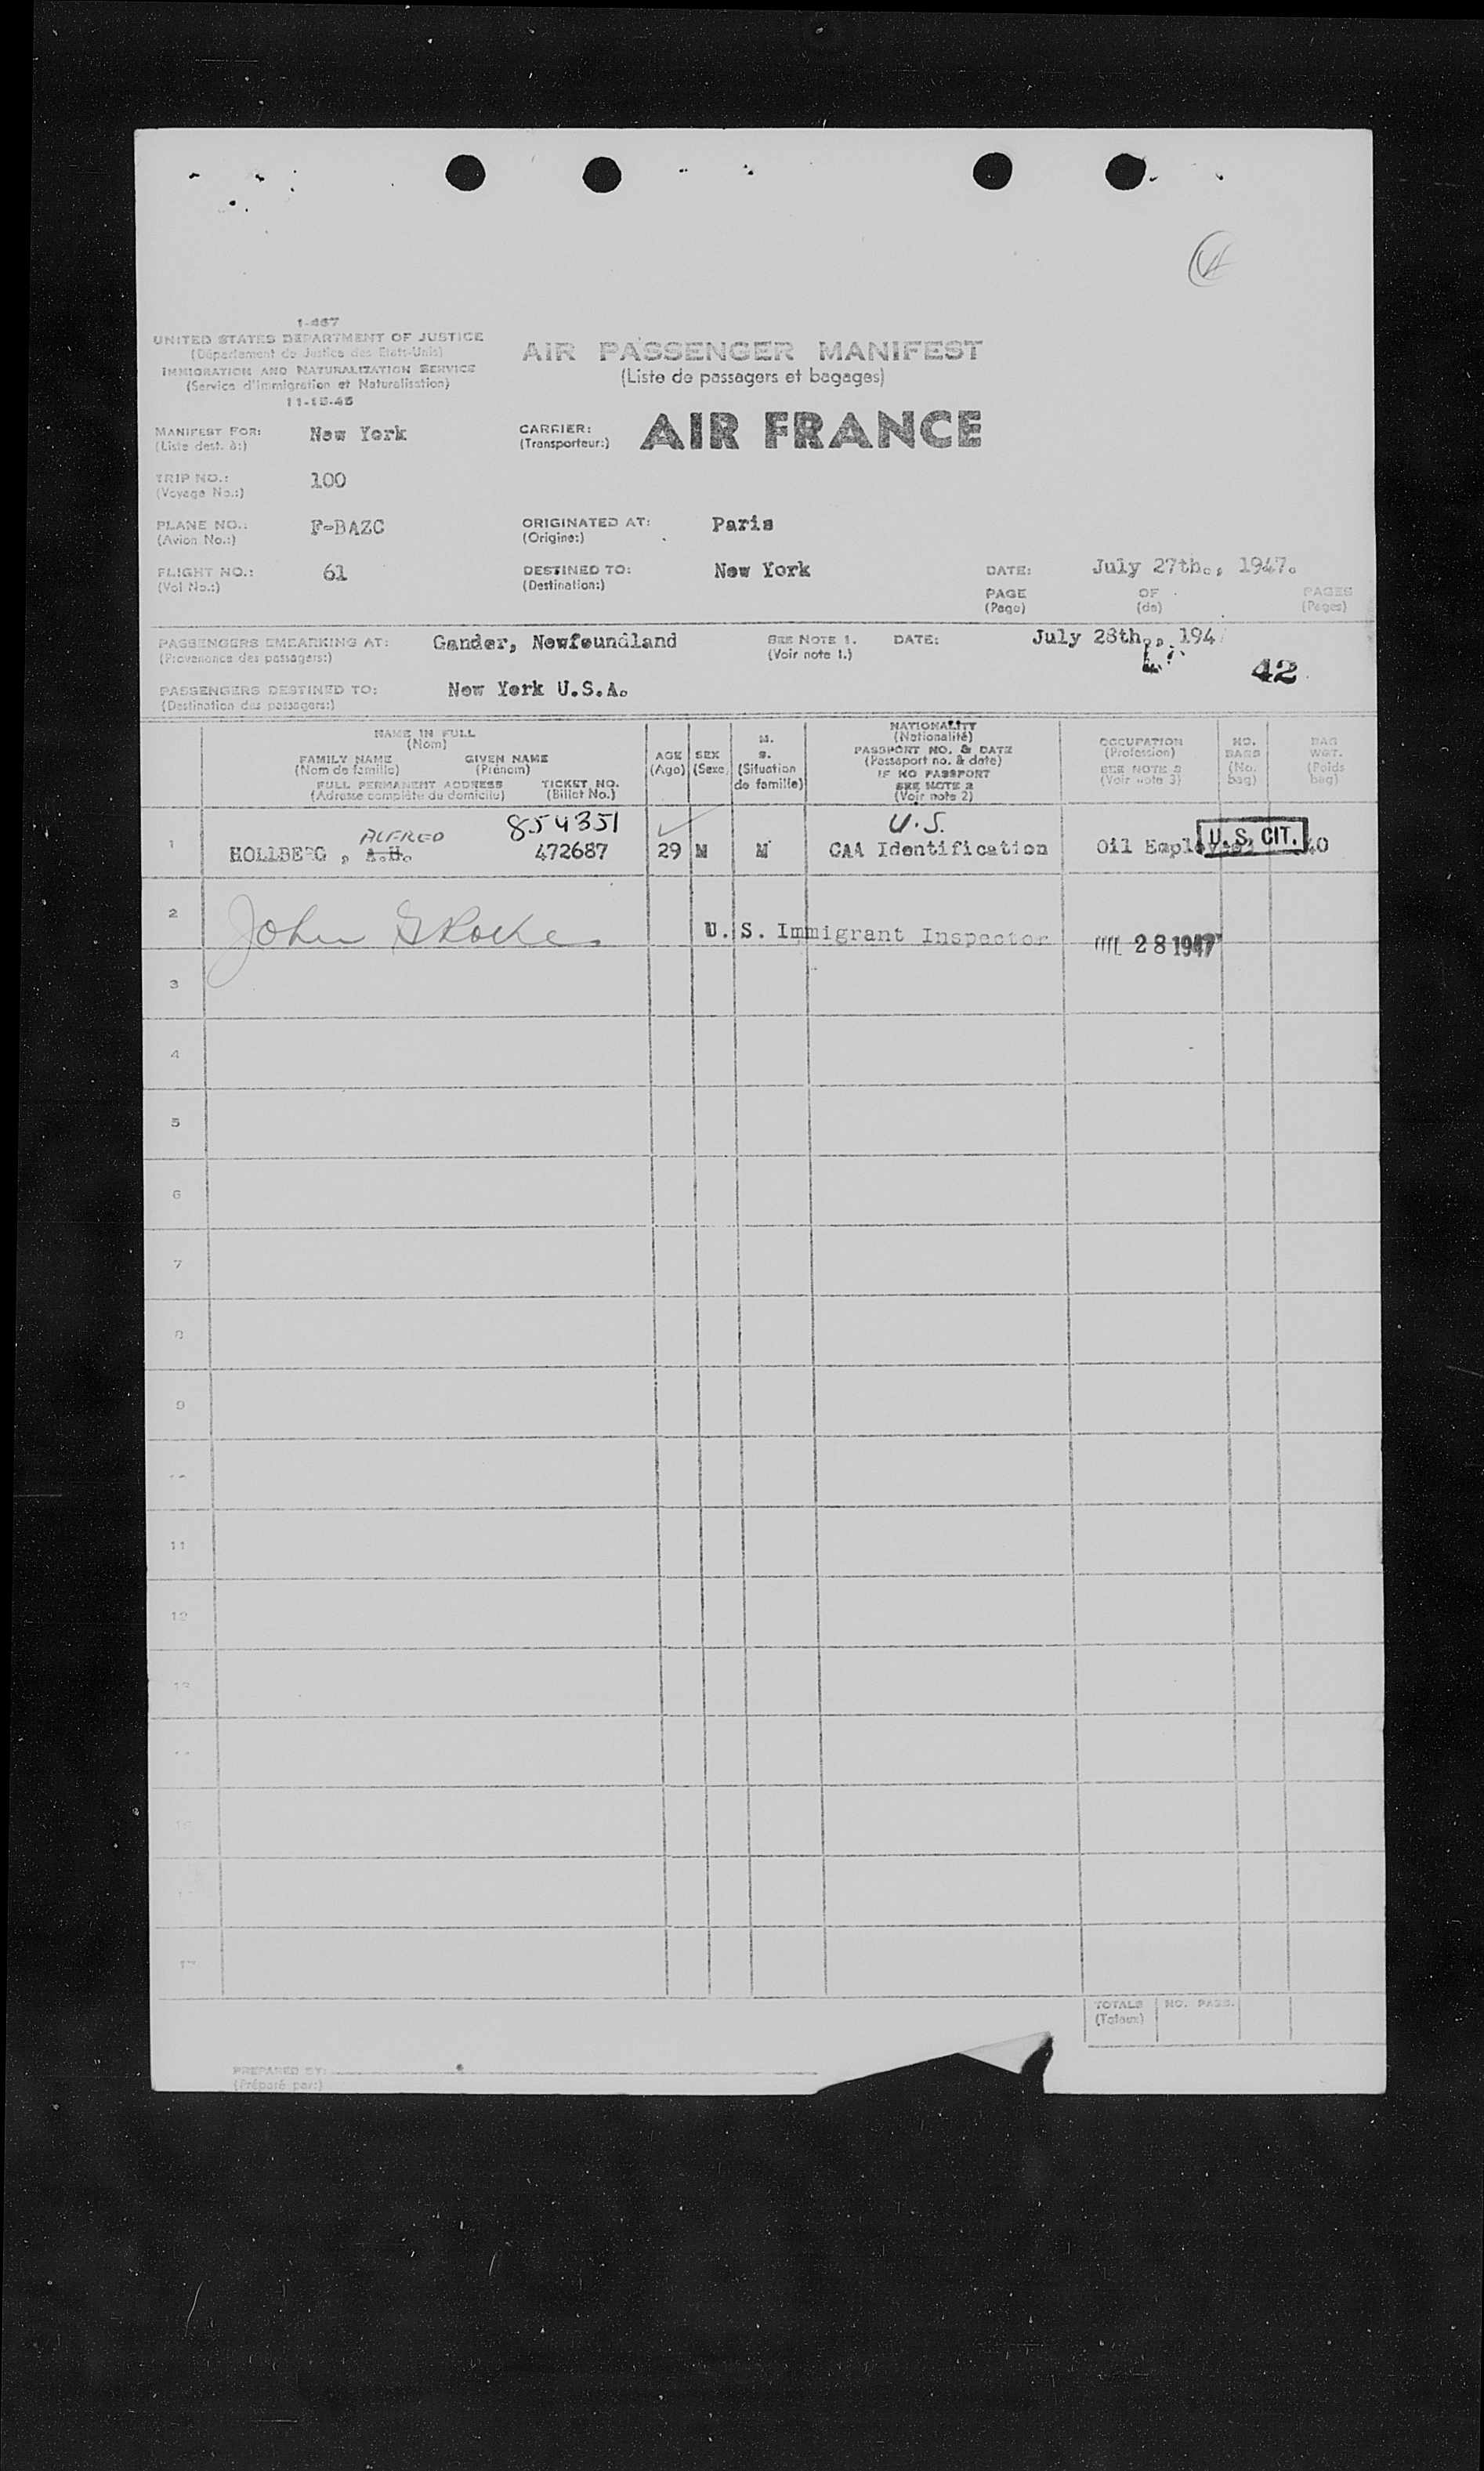 1-467
UNITED STATES DEPARTMENT OF JUSTICE
(Département de Justice des Etats-Unis)
IMMIGRATION AND NATURALIZATION SERVICE
(Service d'immigration et Naturalisation)
11-15-45
AIR PASSENGER MANIFEST
(Liste de passagers et bagages)
MANIFEST FOR: New York
(Liste dest. à:)
CARRIER: AIR FRANCE
(Transporteur:)
TRIP NO.: 100
(Voyage No.:)
PLANE NO.: F-BAZC
(Avion No.:)
ORIGINATED AT: Paris
(Origine:)
FLIGHT NO.: 61
(Vol No.:)
DESTINED TO: New York
(Destination:)
DATE: July 27th., 1947.
PAGE OF PAGES
(Page) (de) (Pages)
PASSENGERS EMBARKING AT: Gander, Newfoundland SEE NOTE 1. DATE: July 28th., 194
(Provenance des passagers:) (Voir note 1.)
42
PASSENGERS DESTINED TO: New York U.S.A.
(Destination des passagers:)
NAME IN FULL
(Nom)
FAMILY NAME GIVEN NAME
(Nom de famille) (Prénom)
FULL PERMANENT ADDRESS TICKET NO.
(Adresse complète du domicile) (Billet No.)
AGE
(Age)
SEX
(Sexe)
M.
S.
(Situation
de famille)
NATIONALITY
(Nationalité)
PASSPORT NO. & DATE
(Passeport no. & date)
IF NO PASSPORT
SEE NOTE 2
(Voir note 2)
OCCUPATION
(Profession)
SEE NOTE 3
(Voir note 3)
NO.
BAGS
(No.
bag)
BAG
WGT.
(Poids
bag)
ALFRED 854351 U.S.
1 HOLLBERG , A.H. 472687 29 M M CAA Identification Oil Employee U.S. CIT. 40
2 John G Rocke U.S. Immigrant Inspector JUL 28 1947
3
4
5
6
7
8
9
11
12
13
17
TOTALS NO. PASS.
(Totaux)
PREPARED BY:
(Préparé par:)